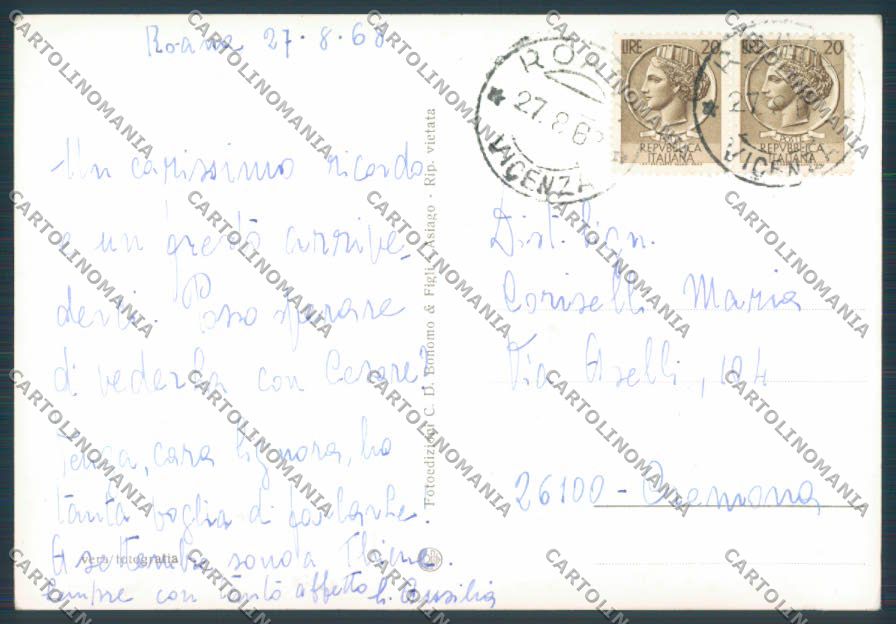 Roana 27.8.68
Un carissimo ricordo
e un presto arrive_
derci. Posso sperare
di vederla con Cesare?
Venga, cara Signora, ho
tanta voglia di parlarle!
A settembre sono a Thiene.
Sempre con tanto affetto
vera fotografia
Fotoedizioni C. D. Bonomo & Figli - Asiago - Rip. vietata
LIRE 20
REPVBBLICA
ITALIANA
20
REPVBBLICA
ITALIANA
27.8.68
VICENZA
VICENZA
Dist. Sign.
Coriselli Maria
Via Aselli, 104
26100 - Cremona
CARTOLINOMANIA